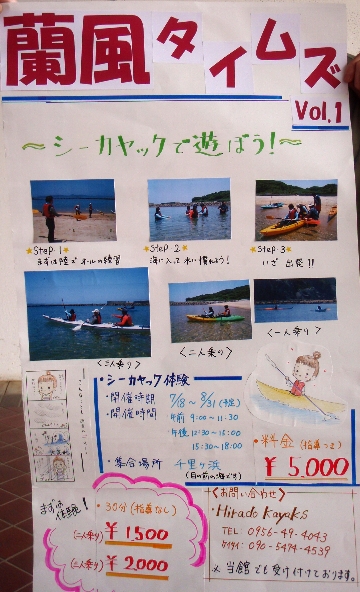 蘭風タイムズ
Vol.1
～シーカヤックで遊ぼう!～
Step.1
まずは陸でオールの練習
Step.2
海に入って水に慣れよう!
Step.3
いざ 出発!!
〈三人乗り〉
〈二人乗り〉
〈一人乗り〉
・シーカヤック体験
・開催時期 7/18～8/31(予定)
・開催時間 午前 9:00～11:30
午後 12:30～15:00
15:30～18:00
・集合場所 千里ヶ浜
(目の前の海です)
・料金(指導つき)
¥5,000
まずは体験!
・30分(指導なし)
(一人乗り) ¥1,500
(二人乗り) ¥2,000
〈お問い合わせ〉
・Hirado Kayaks
TEL: 0956-49-4043
ケイタイ: 090-5474-4539
※当館でも受け付けております。